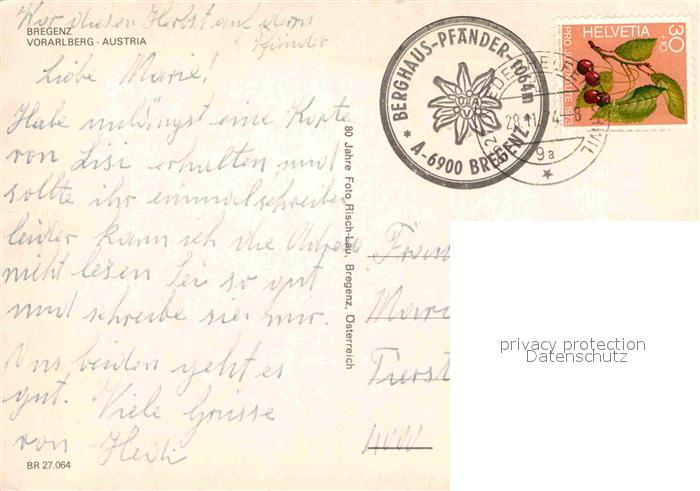 War diesen Herbst auf dem
Pfänder
BREGENZ
VORARLBERG - AUSTRIA
Liebe Marie!
Habe unlängst eine Karte
von Lisi erhalten und
sollte ihr einmal schreiben
leider kann ich die Adresse
nicht lesen Sei so gut
und schreibe sie mir.
Uns beiden geht es
gut. Viele Grüsse
von Heidi
BR 27.064
80 Jahre Foto Risch-Lau, Bregenz, Österreich
BERGHAUS-PFÄNDER-1064m
* A-6900 BREGENZ *
28.11.74-8
9a
HELVETIA
30
+10
PRO JUVENTUTE 1973
Frau
Marie
Tierst
4000
privacy protection
Datenschutz